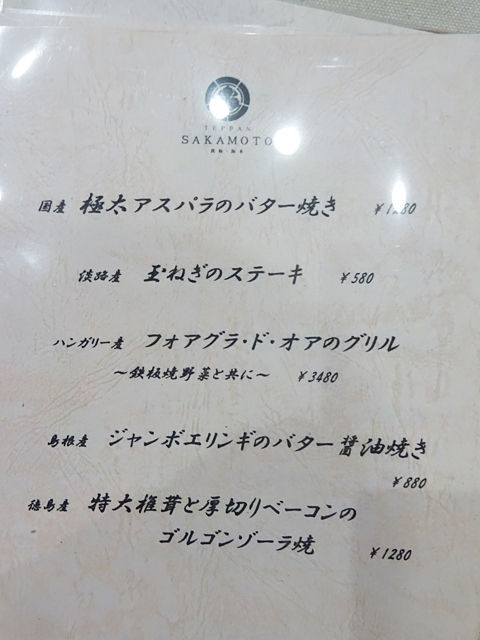 TEPPAN
SAKAMOTO
国産 極太アスパラのバター焼き ￥1280
淡路産 玉ねぎのステーキ ￥580
ハンガリー産 フォアグラ・ド・オアのグリル
～鉄板焼野菜と共に～ ￥3480
島根産 ジャンボエリンギのバター醤油焼き
￥880
徳島産 特大椎茸と厚切りベーコンの
ゴルゴンゾーラ焼 ￥1280